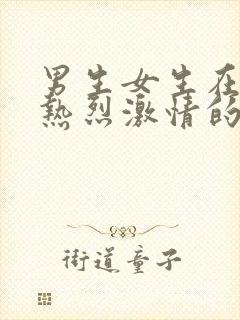 男生女生在
热烈激情的
街道童子